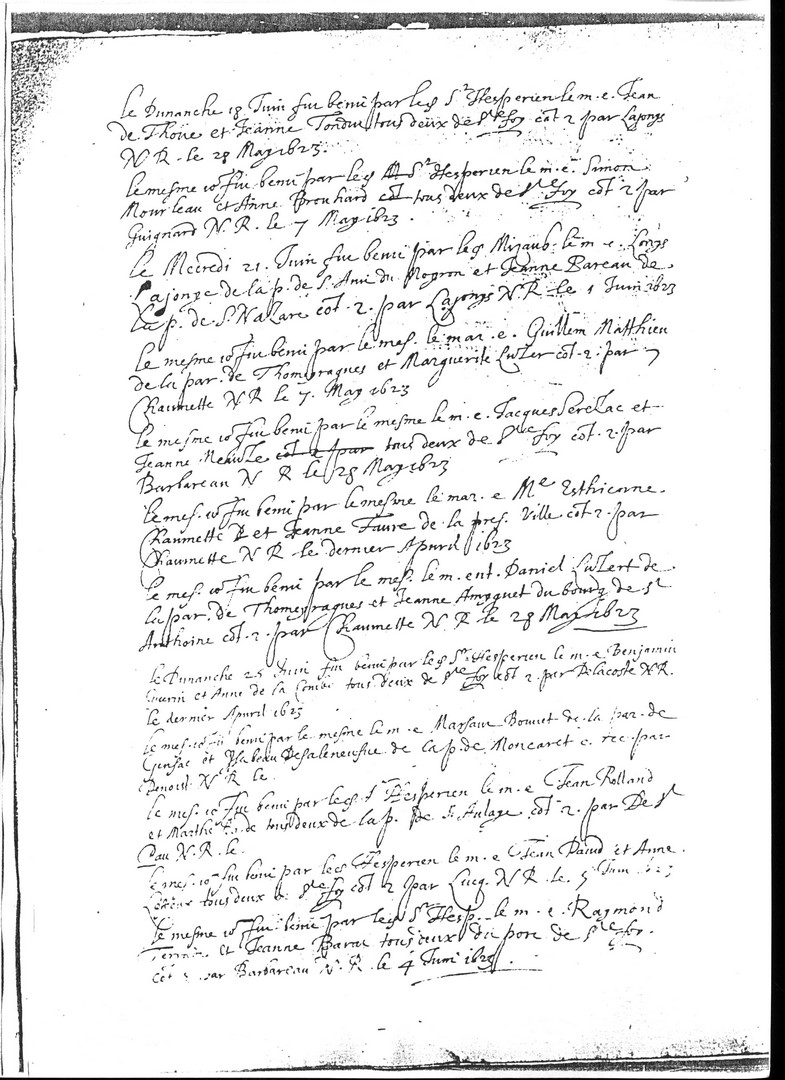 Le Dimanche 18 Juin fut beni par led Sr Hesperien le m. e. Jean
de Thoüe et Jeanne Tondu tous deux de Ste foy cot 2 par Lajonye
N R. le 28 May 1623.
Le mesme io fut beni par led Sr Hesperien le m. e. Simon
Mourleau et Anne Brouhard cot tous deux de Ste Foy cot 2 par
Guignard N. R. le 7 May 1623.
Le Mecredi 21. Juin fut beni par led Mizaub. le m. e. Lonys
Lajonye de la p. de S. Avit du Moyron et Jeanne Bareau de
la p. de S. Nazare cot. 2. par Lajonye N R le 1 Juin 1623
Le mesme io fut beni par le mes. le mar. e. Guillem Matthieu
de la par. de Thomeyragues et Marguerite Luzer cot. 2. par
Chaumette N R le 7. May 1623
Le mesme io fut beni par le mesme le m. e. Jacques Serezac et
Jeanne cot 2 par tous deux de Ste Foy cot. 2. par
Barbareau N R le 28 May 1623
Le mes. io fut beni par le mesme le mar. e Me Esthienne
Chaumette et Jeanne Faure de la pres. Ville cot 2. par
Chaumette N R le dernier Apvril 1623
Le mes. io fut beni par le mes. le m. ent. Daniel Luzert de
la par. de Thomeyragues et Jeanne Amyguet du bourg de St
Anthoine cot. 2. par Chaumette N. R le 28 May 1623
Le Dimanche 25 Juin fut beni par led Sr Hesperien le m. e Benjamin
Guerin et Anne de la Combe tous deux de Ste foy cot 2 par Delacoste N R.
le dernier Apvril 1623
Le mes. io fut beni par le mesme le m. e Marsaut Bouuet de la par. de
Gensac et Ysabeau Desaleneufue de la p. de Moncaret c. rec. par
Benoist N R le
Le mes. io fut beni par led Sr Hesperien le m. e Jean Rolland
et Marthe tous deux de la p. de S. Aulaye cot 2. par De St
Pau N. R. le.
Le mes. io fut beni par led Hesperien le m. e Jean Dauid et Anne
tous deux de Ste foy cot 2 par Lucq. N R. le. 5 Juin 1623
Le mesme io fut beni par led Sr Hesp. le m. e. Raymond
et Jeanne Barau tous deux du port de Ste foy.
cot 2 par Barbareau N. R. le 4 Juin 1623.